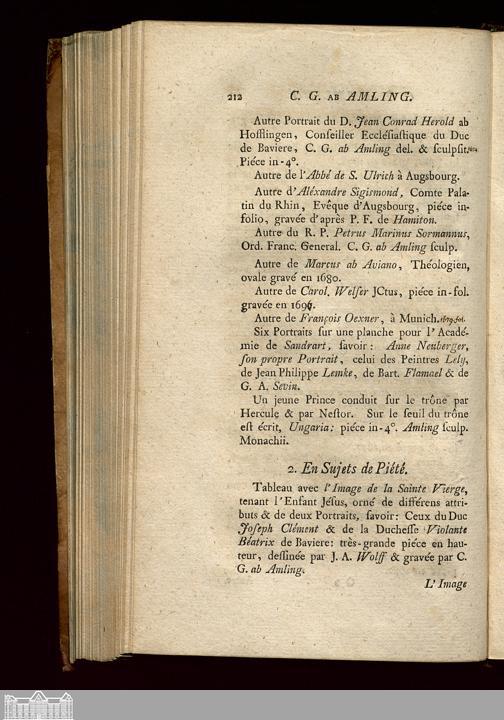 212 C. G. AB AMLING.
Autre Portrait du D. Jean Conrad Herold ab
Hofflingen, Conſeiller Eccléſiaſtique du Duc
de Baviere, C. G. ab Amling del. & ſculpſit.
Piéce in-4°.
Autre de l'Abbé de S. Ulrich à Augsbourg.
Autre d'Aléxandre Sigismond, Comte Pala-
tin du Rhin, Evêque d'Augsbourg, piéce in-
folio, gravée d'après P. F. de Hamiton.
Autre du R. P. Petrus Marinus Sormannus,
Ord. Franc. General. C. G. ab Amling ſculp.
Autre de Marcus ab Aviano, Théologien,
ovale gravé en 1680.
Autre de Carol. Welſer JCtus, piéce in-fol.
gravée en 1696.
Autre de François Oexner, à Munich.
Six Portraits ſur une planche pour l'Acadé-
mie de Sandrart, ſavoir: Anne Neuberger,
ſon propre Portrait, celui des Peintres Lely,
de Jean Philippe Lemke, de Bart. Flamael & de
G. A. Sevin.
Un jeune Prince conduit ſur le trône par
Hercule & par Neſtor. Sur le ſeuil du trône
eſt écrit, Ungaria: piéce in-4°. Amling ſculp.
Monachii.
2. En Sujets de Piété.
Tableau avec l'Image de la Sainte Vierge,
tenant l'Enfant Jéſus, orné de différens attri-
buts & de deux Portraits, ſavoir: Ceux du Duc
Joſeph Clément & de la Ducheſſe Violante
Béatrix de Baviere: très-grande piéce en hau-
teur, deſſinée par J. A. Wolff & gravée par C.
G. ab Amling.
L'Image